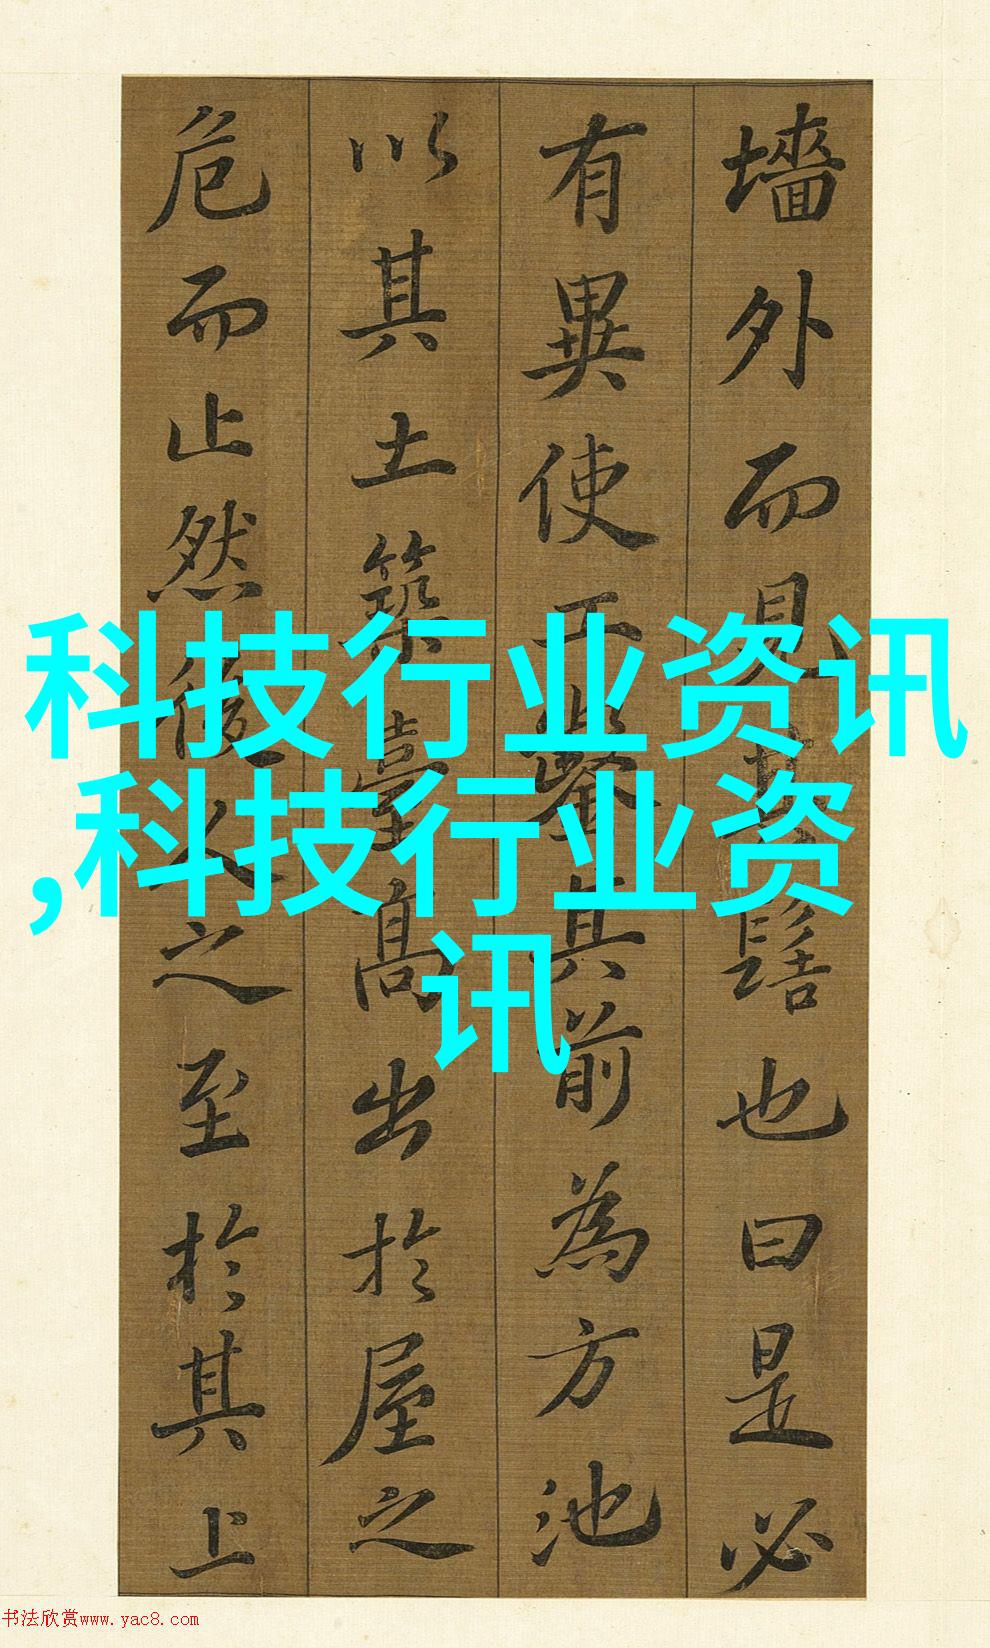 墻外而見其髻也曰是必
有異使工鑿其前為方池
以其土築臺高出於屋之
危而止然後人之至於其上
科技行业资讯
,科技行业资
讯
书法欣赏www.yac8.com